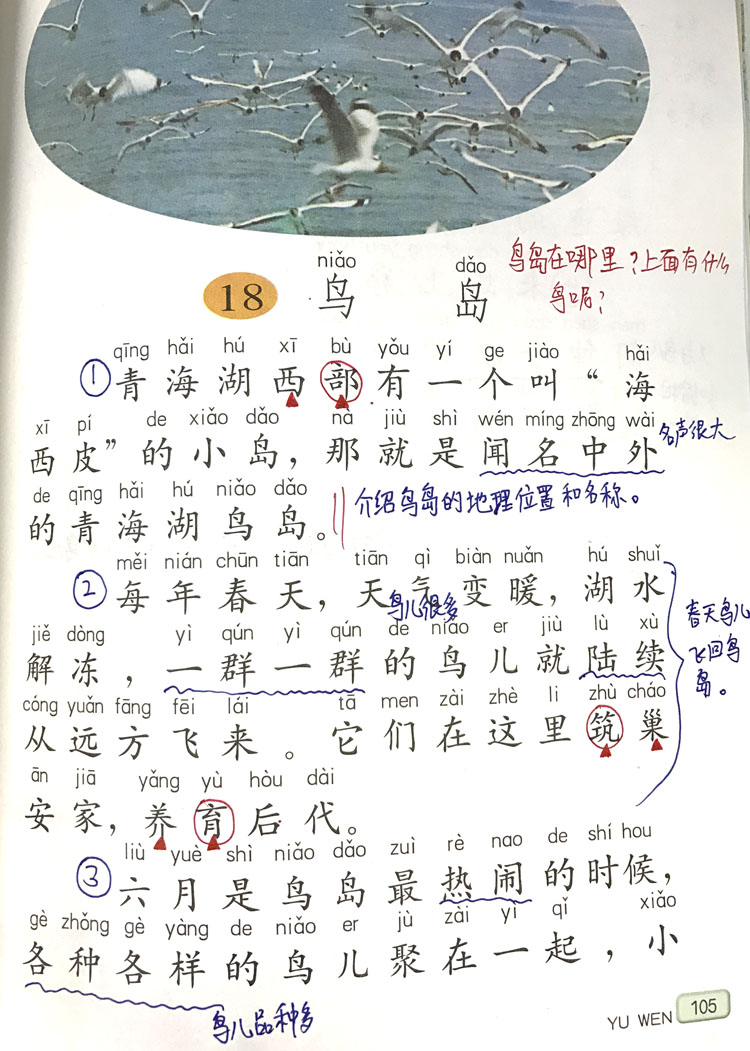 niǎo dǎo
18 鸟 岛
鸟岛在哪里?上面有什么
鸟呢?
qīng hǎi hú xī bù yǒu yí ge jiào hǎi
① 青海湖西部有一个叫“海
xī pí de xiǎo dǎo nà jiù shì wén míng zhōng wài
西皮”的小岛，那就是闻名中外
名声很大
de qīng hǎi hú niǎo dǎo
的青海湖鸟岛。
介绍鸟岛的地理位置和名称。
měi nián chūn tiān tiān qì biàn nuǎn hú shuǐ
② 每年春天，天气变暖，湖水
鸟儿很多
jiě dòng yì qún yì qún de niǎo er jiù lù xù
解冻，一群一群的鸟儿就陆续
春天鸟儿
飞回鸟
岛。
cóng yuǎn fāng fēi lái tā men zài zhè li zhù cháo
从远方飞来。它们在这里筑巢
ān jiā yǎng yù hòu dài
安家，养育后代。
liù yuè shì niǎo dǎo zuì rè nao de shí hou
③ 六月是鸟岛最热闹的时候，
gè zhǒng gè yàng de niǎo er jù zài yì qǐ xiǎo
各种各样的鸟儿聚在一起，小
鸟儿品种多
YU WEN 105